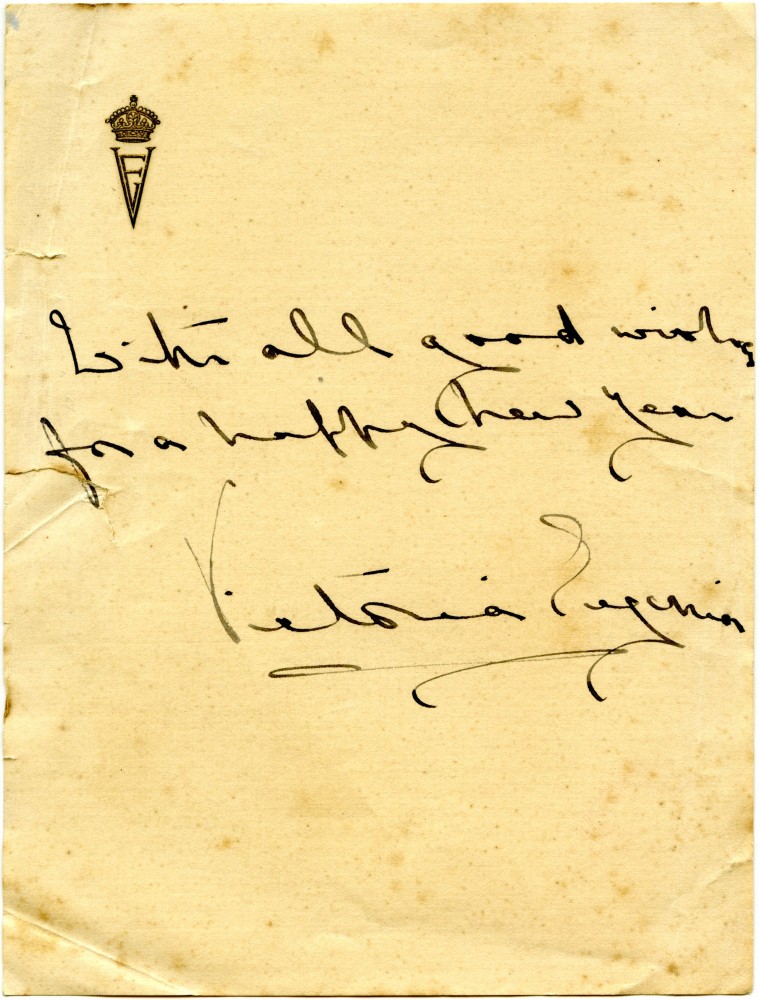 VE
With all good wishes
for a happy new year
Victoria Eugenia